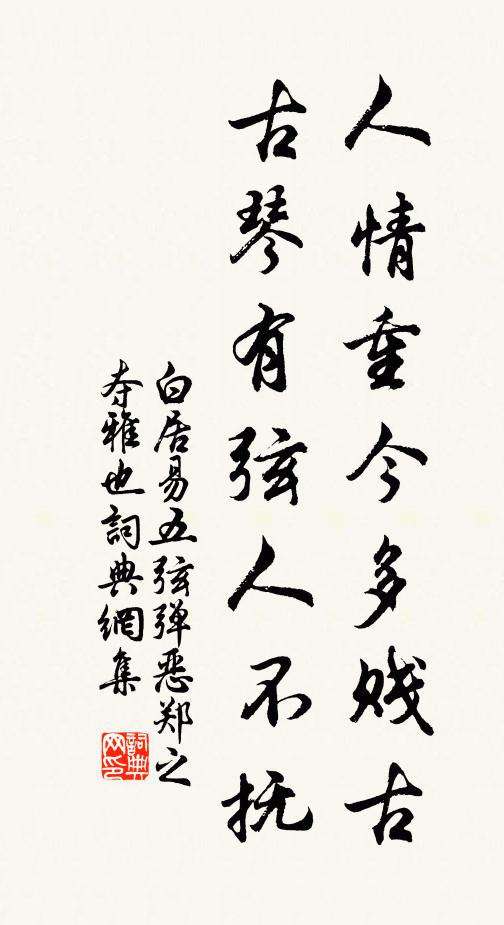 人情重今多贱古
古琴有弦人不抚
白居易五弦弹恶郑之
夺雅也詞典網集
詞典
网印